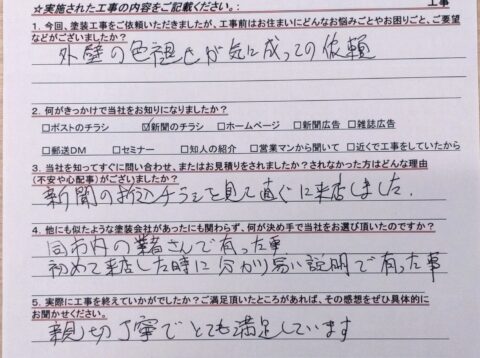 ☆実施された工事の内容をご記載ください。: 工事
1. 今回、塗装工事をご依頼いただきましたが、工事前はお住まいにどんなお悩みごとやお困りごと、ご要望
などがございましたか？
外壁の色褪せが気に成っての依頼
2. 何がきっかけで当社をお知りになりましたか？
□ポストのチラシ ☑新聞のチラシ □ホームページ □新聞広告 □雑誌広告
□郵送DM □セミナー □知人の紹介 □営業マンから聞いて □近くで工事をしていたから
3. 当社を知ってすぐに問い合わせ、またはお見積りをされましたか？されなかった方はどんな理由
(不安や心配事)がございましたか？
新聞の折込チラシを見て直ぐに来店しました.
4. 他にも似たような塗装会社があったにも関わらず、何が決め手で当社をお選び頂いたのですか？
同市内の業者さんで有った事
初めて来店した時に分かり易い説明で有った事
5. 実際に工事を終えていかがでしたか？ご満足頂いたところがあれば、その感想をぜひ具体的に
お聞かせください。
親切丁寧でとても満足しています